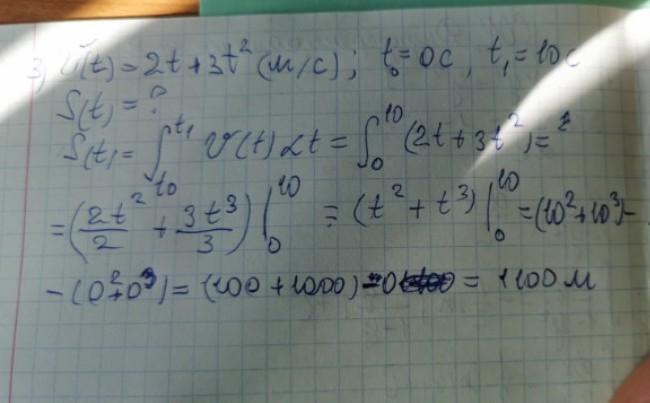 3) v(t) = 2t + 3t² (м/с); t₀ = 0с, t₁ = 10с
S(t) = ?
S(t) = ∫t₀t₁ v(t) dt = ∫₀¹⁰ (2t + 3t²) =
= (2t²/2 + 3t³/3) |₀¹⁰ = (t² + t³) |₀¹⁰ = (10² + 10³) -
- (0² + 0³) = (100 + 1000) - 0 = 1100 м